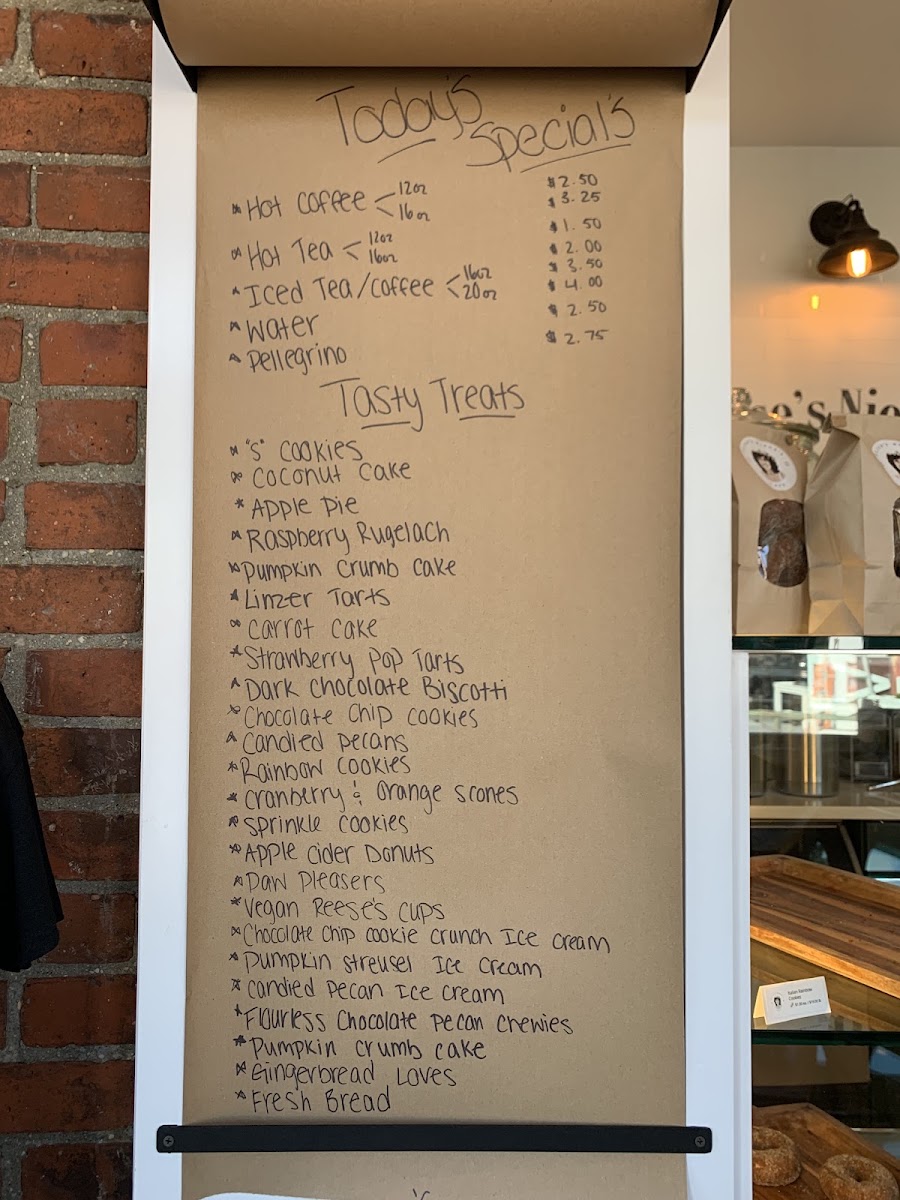 Today's Special's
* Hot Coffee < 12oz $2.50
16oz $3.25
* Hot Tea < 12oz $1.50
16oz $2.00
* Iced Tea/Coffee < 16oz $3.50
20oz $4.00
* Water $2.50
* Pellegrino $2.75
Tasty Treats
* "S" Cookies
* Coconut Cake
* Apple Pie
* Raspberry Rugelach
* Pumpkin Crumb Cake
* Linzer Tarts
* Carrot Cake
* Strawberry Pop Tarts
* Dark Chocolate Biscotti
* Chocolate Chip Cookies
* Candied Pecans
* Rainbow Cookies
* Cranberry & Orange Scones
* Sprinkle Cookies
* Apple Cider Donuts
* Paw Pleasers
* Vegan Reese's Cups
* Chocolate Chip Cookie Crunch Ice Cream
* Pumpkin Streusel Ice Cream
* Candied Pecan Ice Cream
* Flourless Chocolate Pecan Chewies
* Pumpkin Crumb Cake
* Gingerbread Loves
* Fresh Bread